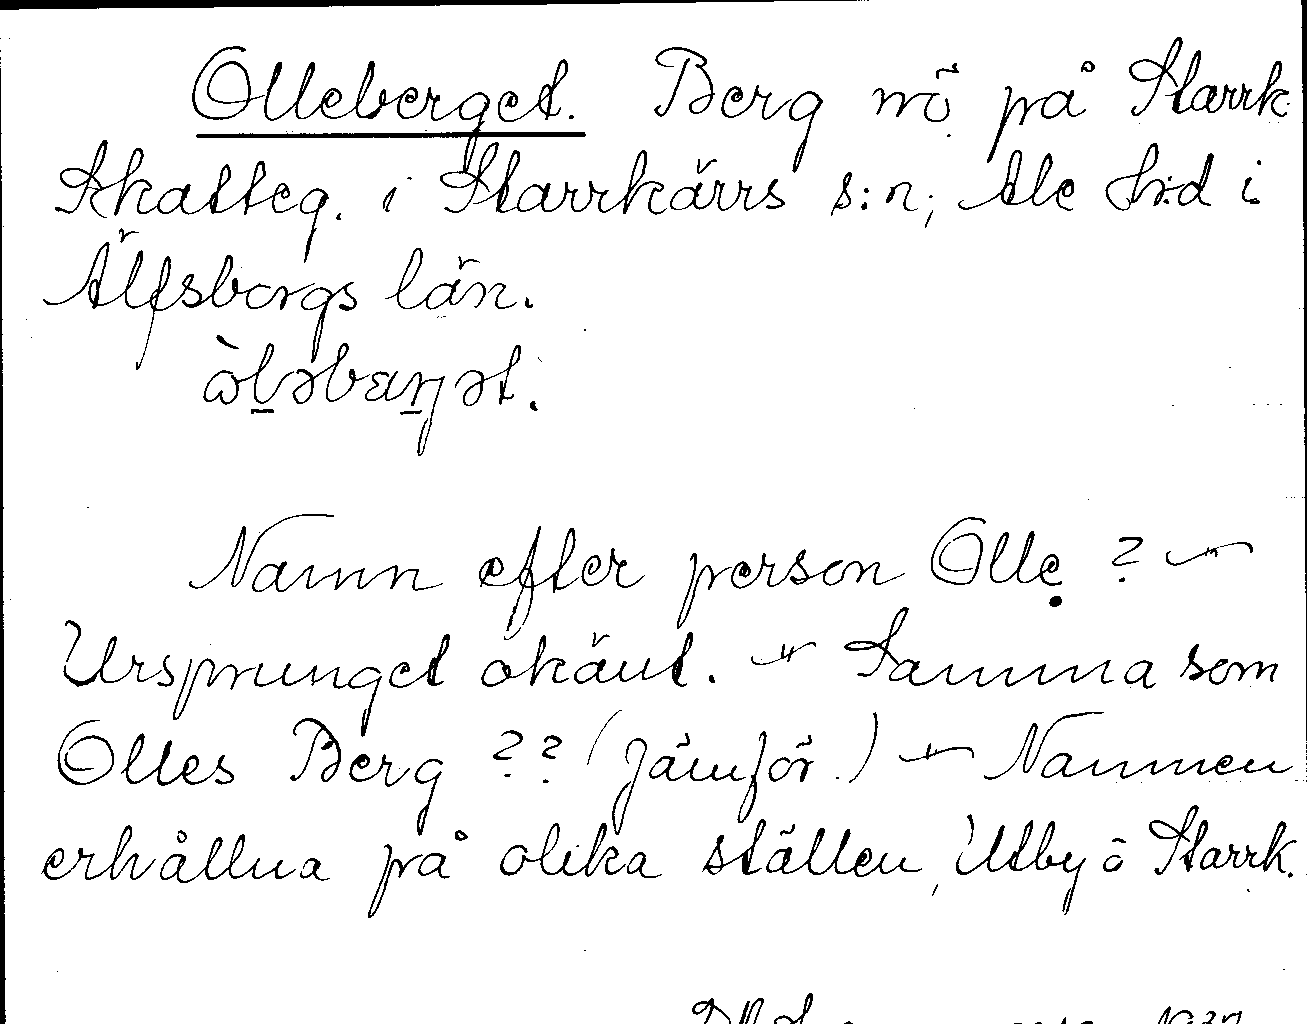 Olleberget. Berg nö på Starrk
Skatteg. i Starrkärrs s:n, Ale h:d i
Älfsborgs län.
Namn efter person Olle ? —
Ursprunget okänt. — Samma som
Olles Berg ?? (Jämför.) — Namnen
erhållna på olika ställen, Utby o Starrk.